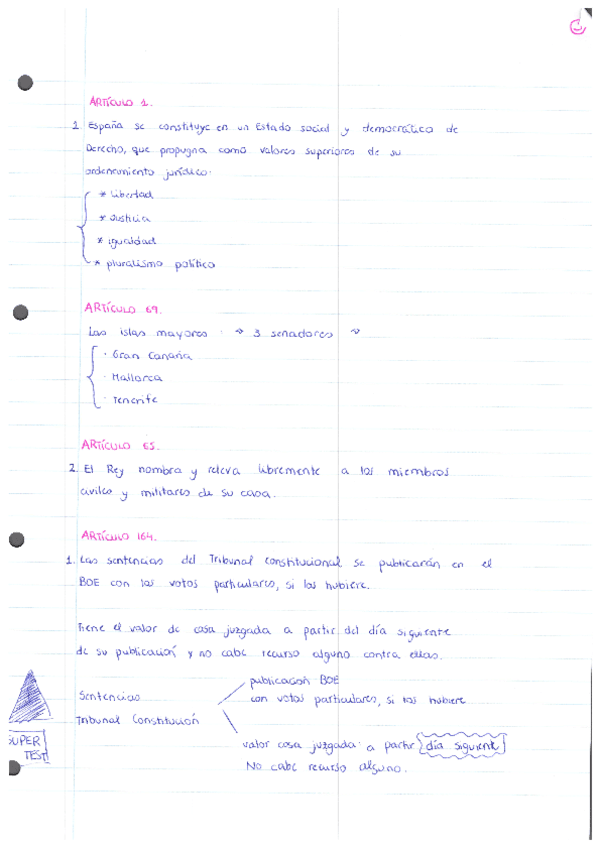 ARTÍCULO 1.
1. España se constituye en un Estado social y democrático de
Derecho, que propugna como valores superiores de su
ordenamiento jurídico:
* libertad
* Justicia
* igualdad
* pluralismo político
ARTÍCULO 69.
Las islas mayores → 3 senadores
· Gran Canaria
· Mallorca
· Tenerife
ARTÍCULO 65.
2. El Rey nombra y releva libremente a los miembros
civiles y militares de su casa.
ARTÍCULO 164.
1. Las sentencias del Tribunal constitucional se publicarán en el
BOE con los votos particulares, si los hubiere.
Tiene el valor de cosa juzgada a partir del día siguiente
de su publicación y no cabe recurso alguno contra ellas.
publicación BOE
con votos particulares, si los hubiere
Sentencias
Tribunal Constitución
valor cosa juzgada: a partir día siguiente
No cabe recurso alguno.
SUPER
TEST